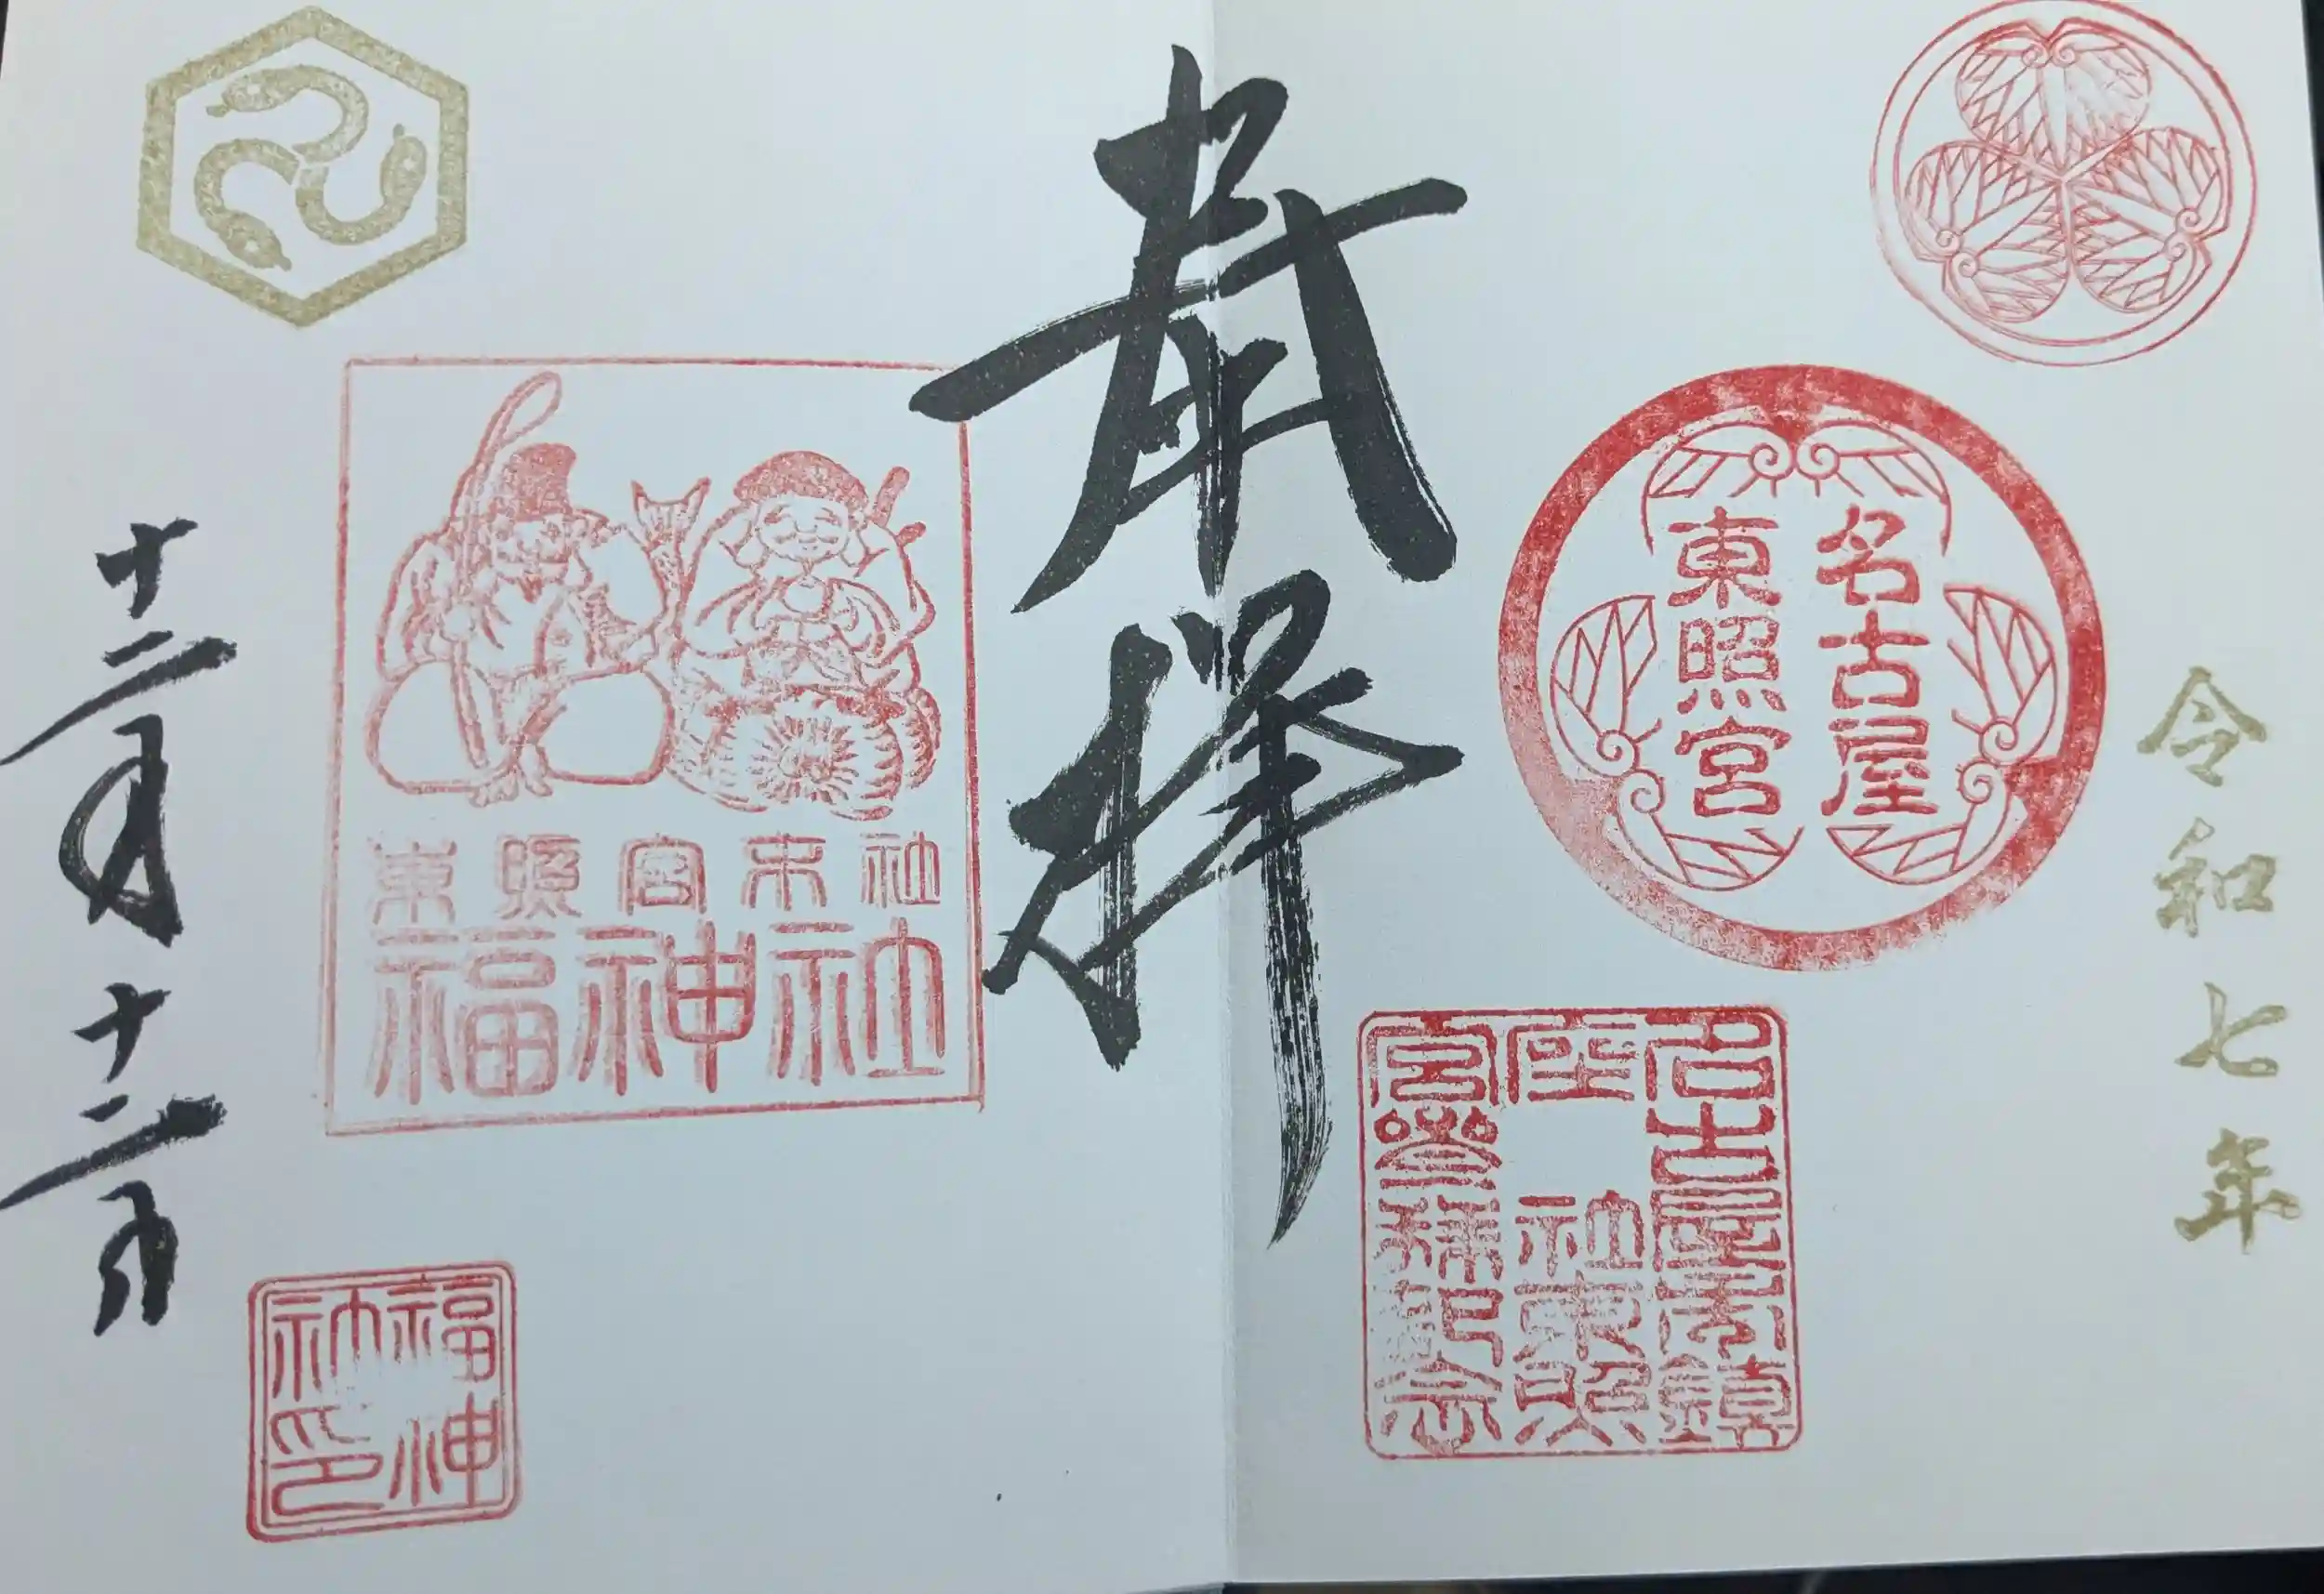 令和七年
名古屋
東照宮
名古屋市鎮
座 社東照
宮参拝記念
奉拝
東照宮末社
福神社
福神
社印
十二月十二日